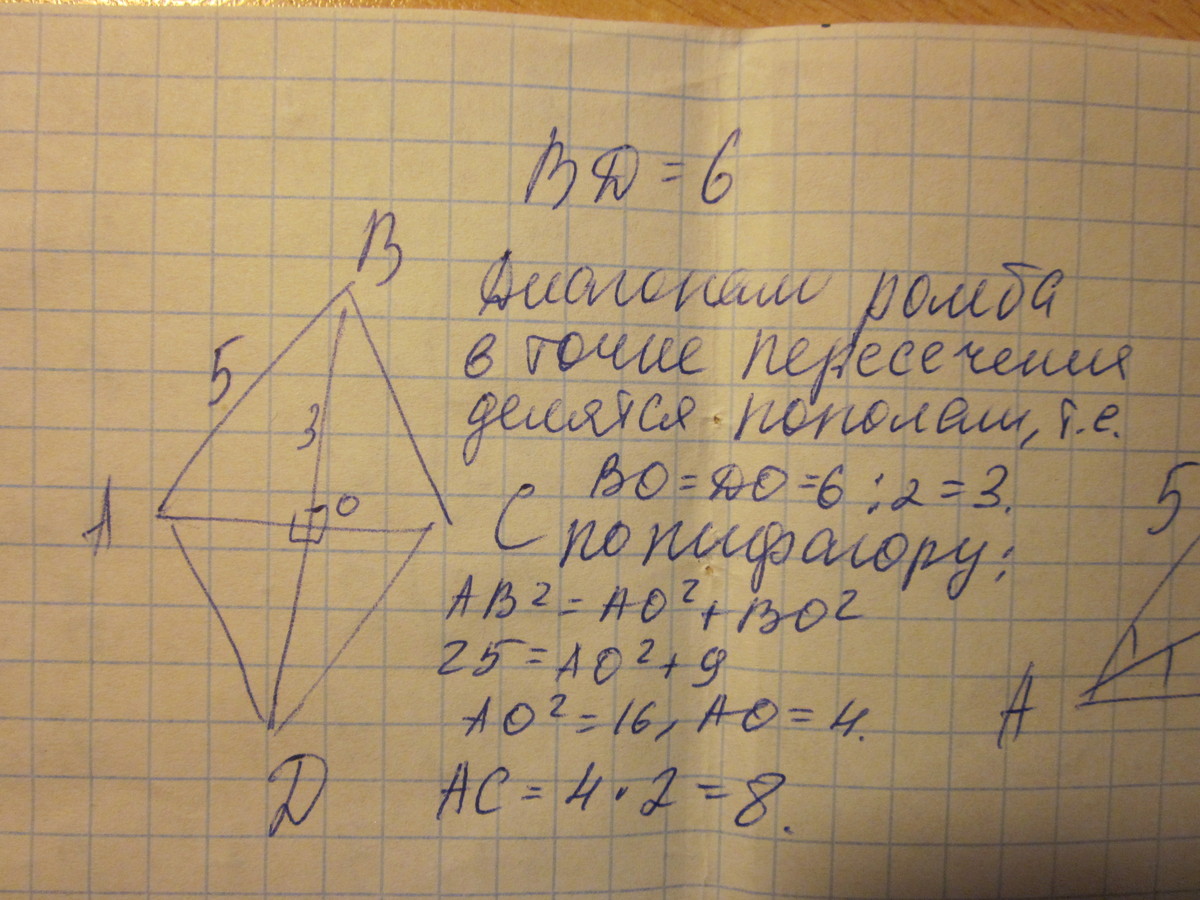 BD = 6
B
Диагонали ромба
в точке пересечения
5
делятся пополам, т.е.
3
BO = DO = 6 : 2 = 3.
A
O
C
5
по пифагору:
AB² = AO² + BO²
25 = AO² + 9
AO² = 16, AO = 4.
A
D
AC = 4 · 2 = 8.